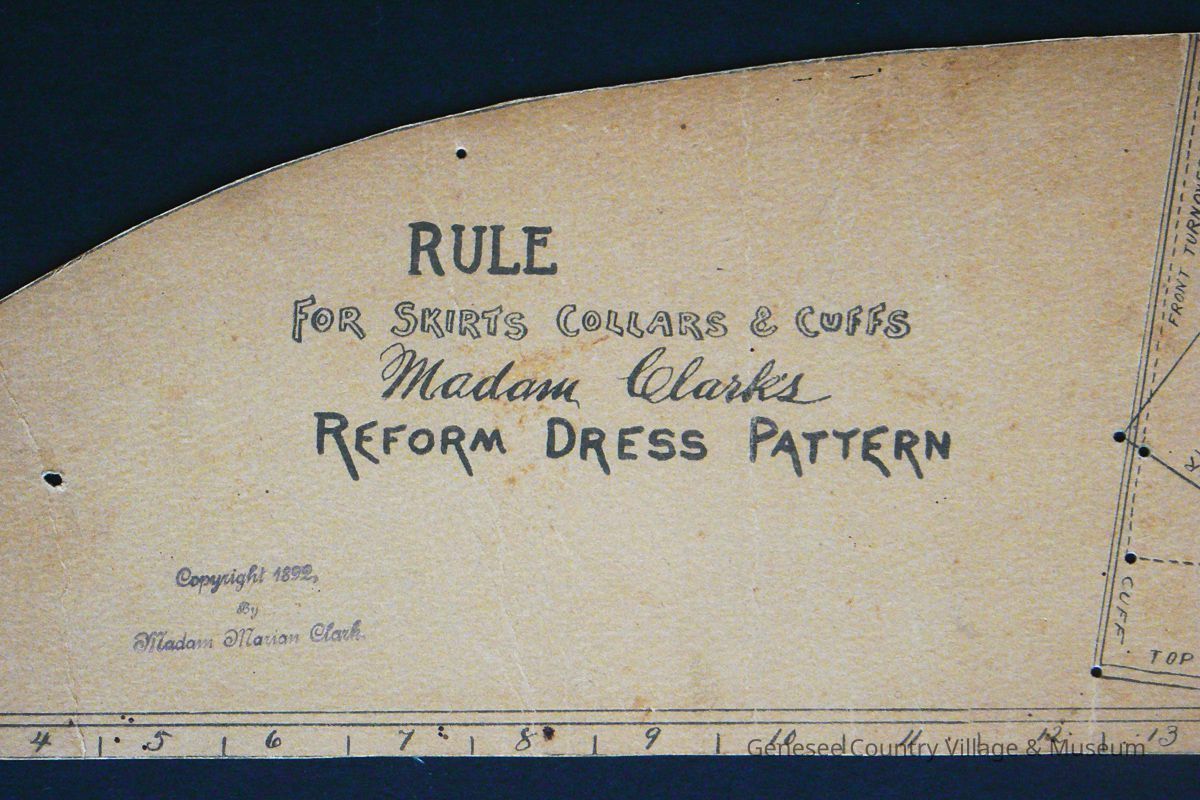 RULE
FOR SKIRTS COLLARS & CUFFS
Madam Clark's
REFORM DRESS PATTERN
FRONT TURNOVE
Copyright 1892,
By
Madam Marian Clark.
CUFF.
TOP
4 5 6 7 8 9 10 11 12 13
Genesee Country Village & Museum